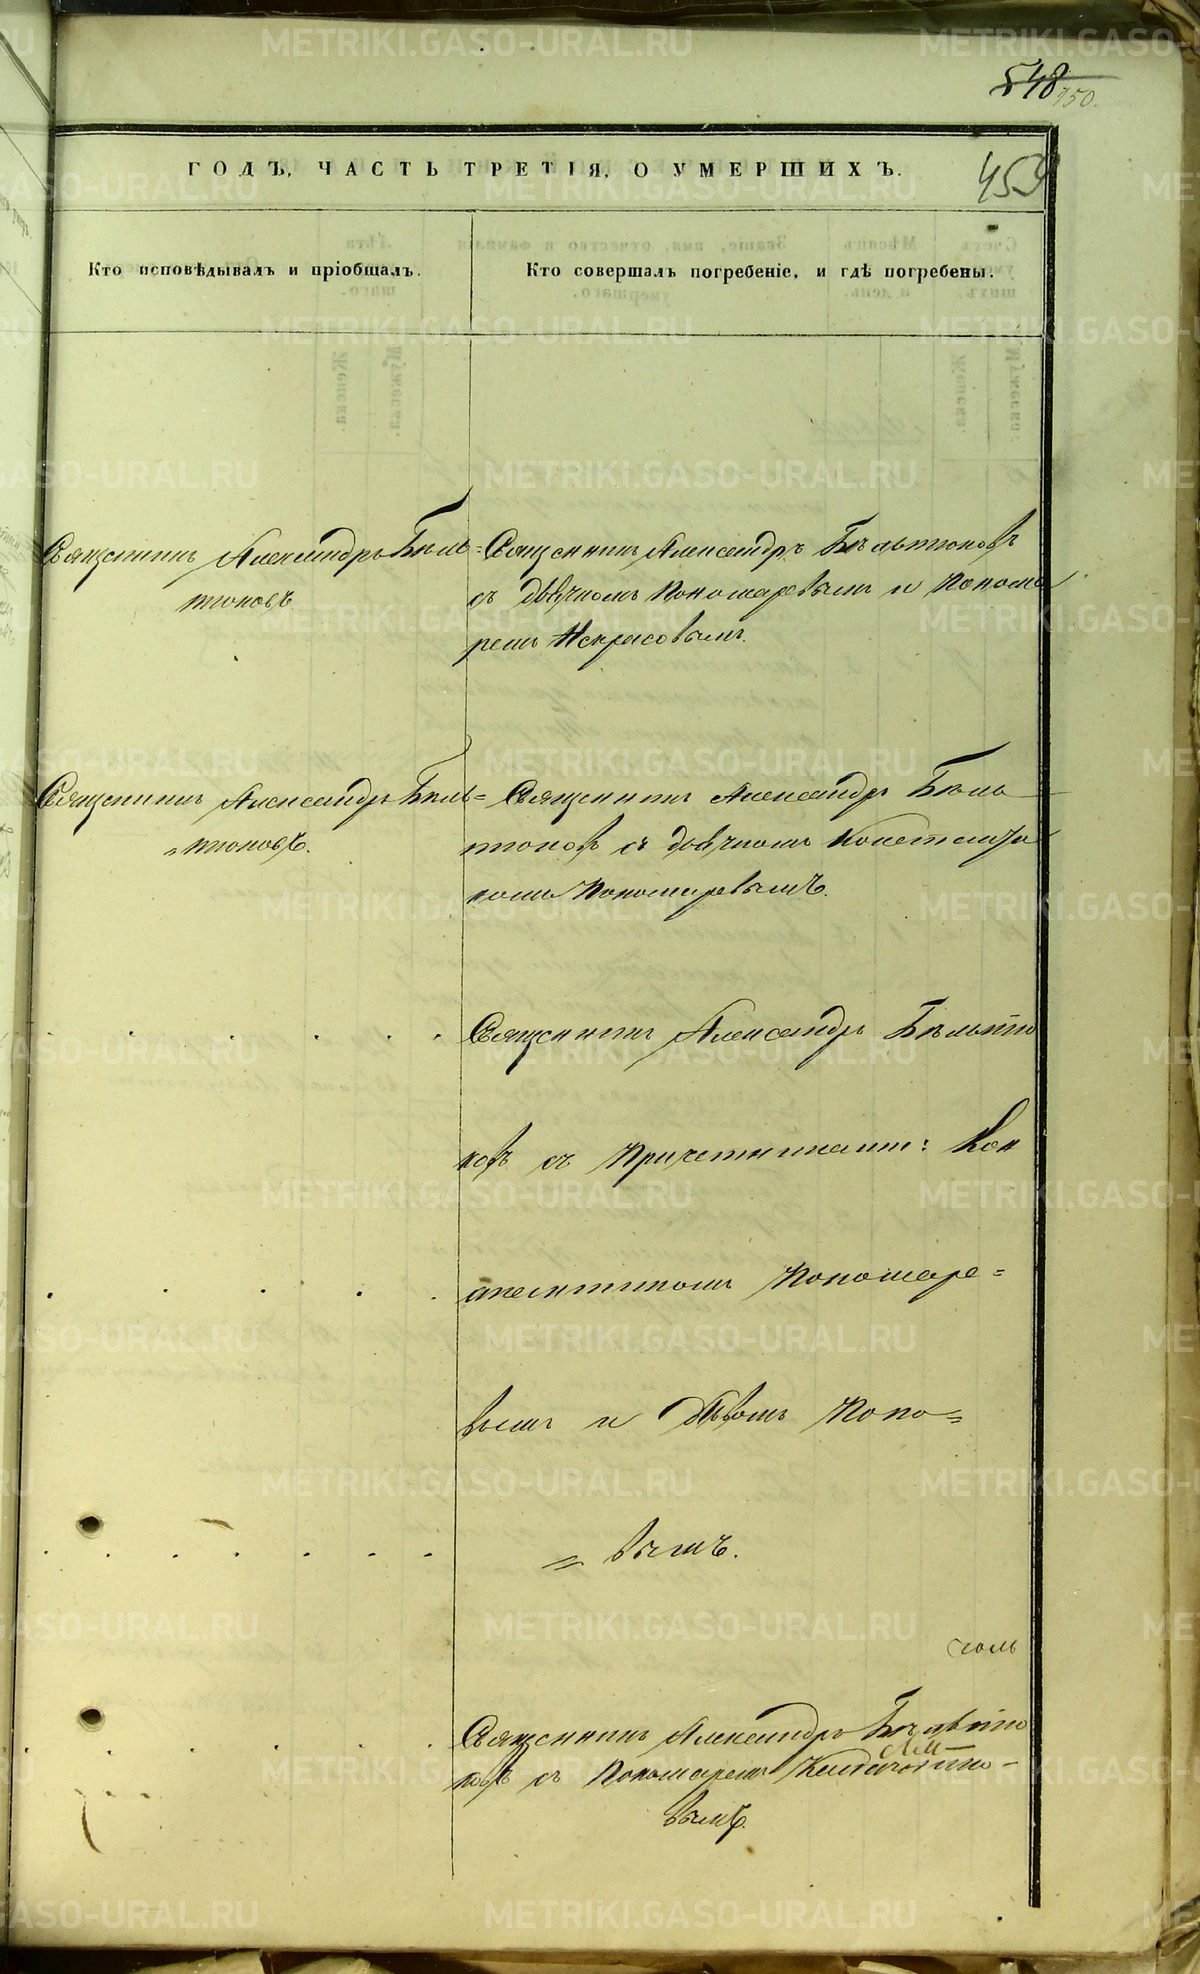 548
950.
ГОДЪ, ЧАСТЬ ТРЕТІЯ, О УМЕРШИХЪ.
453
Кто исповѣдывалъ и пріобщалъ.
Кто совершалъ погребеніе, и гдѣ погребены.
Священникъ Александръ Бѣль=
тюковъ
Священникъ Александръ Бѣльтюковъ
съ дьячкомъ Пономаревымъ и Понома
ремъ Некрасовымъ.
Священникъ Александръ Бѣль=
тюковъ.
Священникъ Александръ Бѣль
тюковъ съ дьячкомъ
Пономаревымъ.
Священникъ Александръ Бѣльтю
ковъ съ Причетниками: Кон
Пономаре=
вымъ и Попо=
=вымъ.
Священникъ Александръ Бѣльтю
ковъ съ Пономаремъ
вымъ.
METRIKI.GASO-URAL.RU